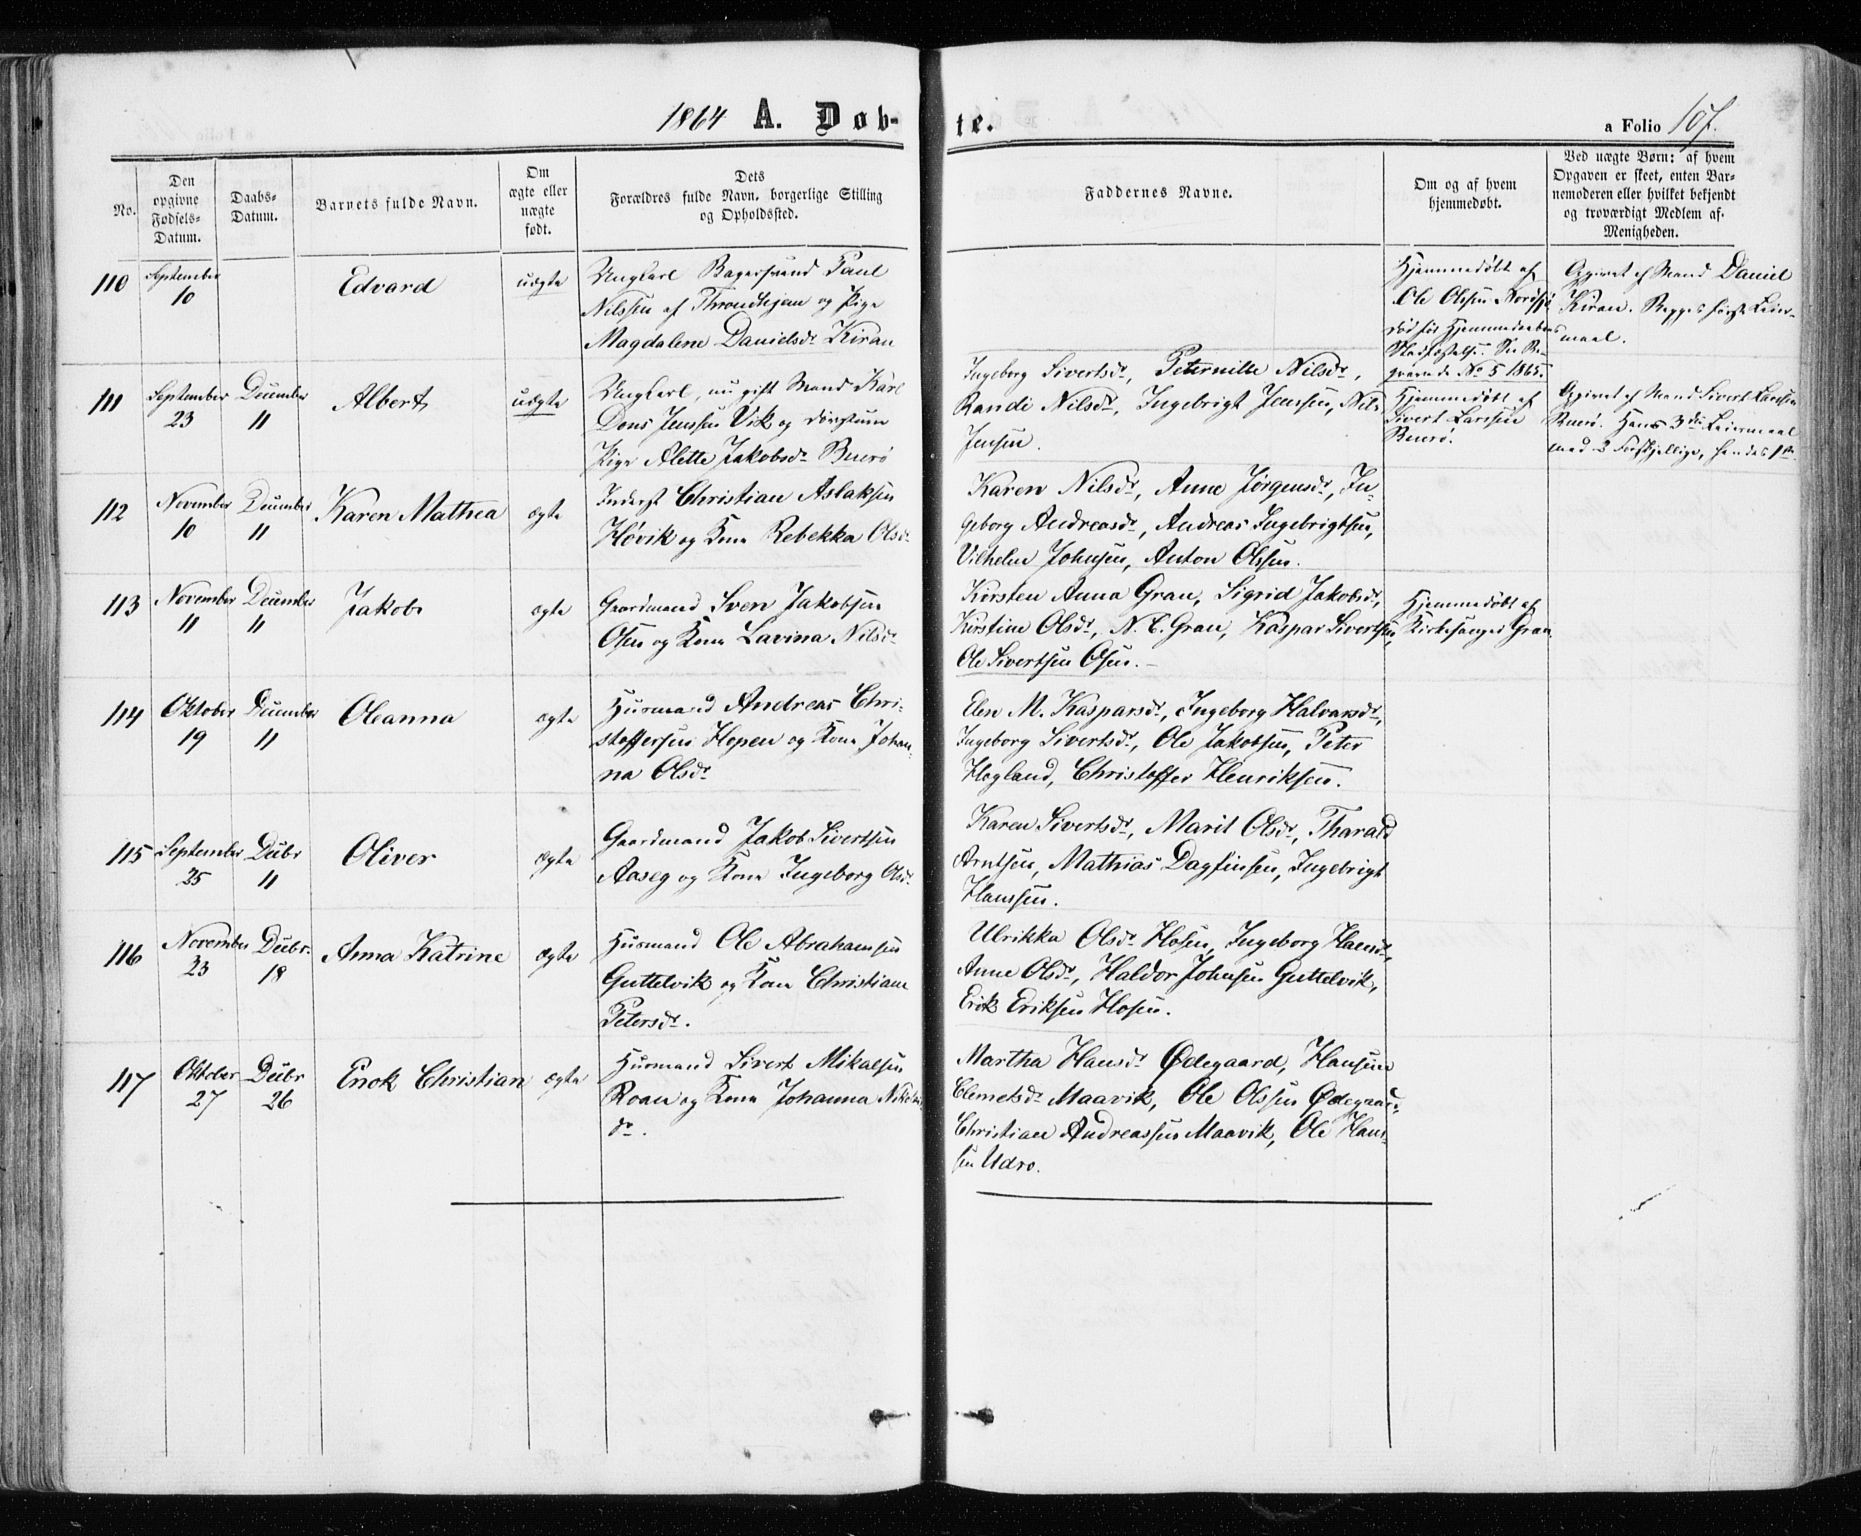 1864 A. Døb-
te.
a Folio 107.
No.
Den
opgivne
Fødsels-
Datum.
Daabs-
Datum.
Barnets fulde Navn.
Om
ægte eller
uægte
født.
Dets
Forældres fulde Navn, borgerlige Stilling
og Opholdssted.
Faddernes Navne.
Om og af hvem
hjemmedøbt.
Ved uægte Børn: af hvem
Opgaven er skeet, enten Bar-
nemoderen eller hvilket bekjendt
og troværdigt Medlem af
Menigheden.
110
September
10
Edvard
uægte
Ungkarl Bagersvend Paul
Nilssen af Throndhjem og Pige
Magdalene Danielsdr Kiran
Hjemmedøbt af
Ole Olsen
død før Hjemmedaabens
Stadfæstelse. Se Be-
gravede No 5 1865.
Opgivet af Mand Daniel
Kiran. Begges første Leier-
maal.
111
September
23
December
11
Albert
uægte
Ungkarl, nu gift Mand Karl
Dons Jenssen Vik og
Pige Alette Jakobsdr Buerø
Ingeborg Sivertsdr, Peternille Nilsdr,
Randi Nilsdr, Ingebrigt Jenssen, Nils
Jensen.
Hjemmedøbt af
Sivert Larssen
Buerø.
Opgivet af Mand Sivert Larssen
Buerø. Hans 3die Leiermaal
med 3 Forskjellige, hendes 1ste
112
November
10
December
11
Karen Mathea
ægte
Inderst Christian Aslaksen
Høvik og Kone Rebekka Olsdr
Karen Nilsdr, Anne Jørgensdr, In-
geborg Andreasdr, Andreas Ingebrigtsen,
Vilhelm Johnsen, Anton Olssen.
113
November
11
December
11
Jakob
ægte
Gaardmand Sven Jakobsen
Osen og Kone Lavina Nilsdr
Kirsten Anna Gran, Sigrid Jakobsdr,
Kirstine Olsdr, N. C. Gran, Kaspar Sivertsen,
Ole Sivertsen Osen.
Hjemmedøbt af
Kirkesanger Gran
114
Oktober
19
December
11
Oleanna
ægte
Husmand Andreas Chri-
stoffersen Hopen og Kone Johan-
na Olsdr
Elen M. Kasparsdr, Ingeborg Halvarsdr,
Ingeborg Sivertsdr, Ole Jakobsen, Peter
Hogland, Christoffer Henriksen.
115
September
25
Decbr
11
Oliver
ægte
Gaardmand Jakob Sivertsen
Aaseg og Kone Ingeborg Olsdr
Karen Sivertsdr, Marit Olsdr, Tharald
Arntsen, Mathias Dagfinsen, Ingebrigt
Hanssen.
116
November
23
Decbr.
18
Anna Katrine
ægte
Husmand Ole Abrahamsen
Guttelvik og Kone Christiane
Petersdr.
Ulrikka Olsdr Hosen, Ingeborg Hansdr,
Anne Olsdr, Haldor Johnsen Guttelvik,
Erik Eriksen Hosen.
117
Oktober
27
Decbr
26
Enok Christian
ægte
Husmand Sivert Mikalsen
Roan og Kone Johanna
dr.
Martha Hansdr Ødegaard, Hansine
Clemetsdr Maavik, Ole Olssen Ødegaard,
Christian Andreassen Maavik, Ole Hans-
sen Udro.